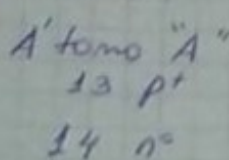 A'tomo "A"
13 p+
14 n°